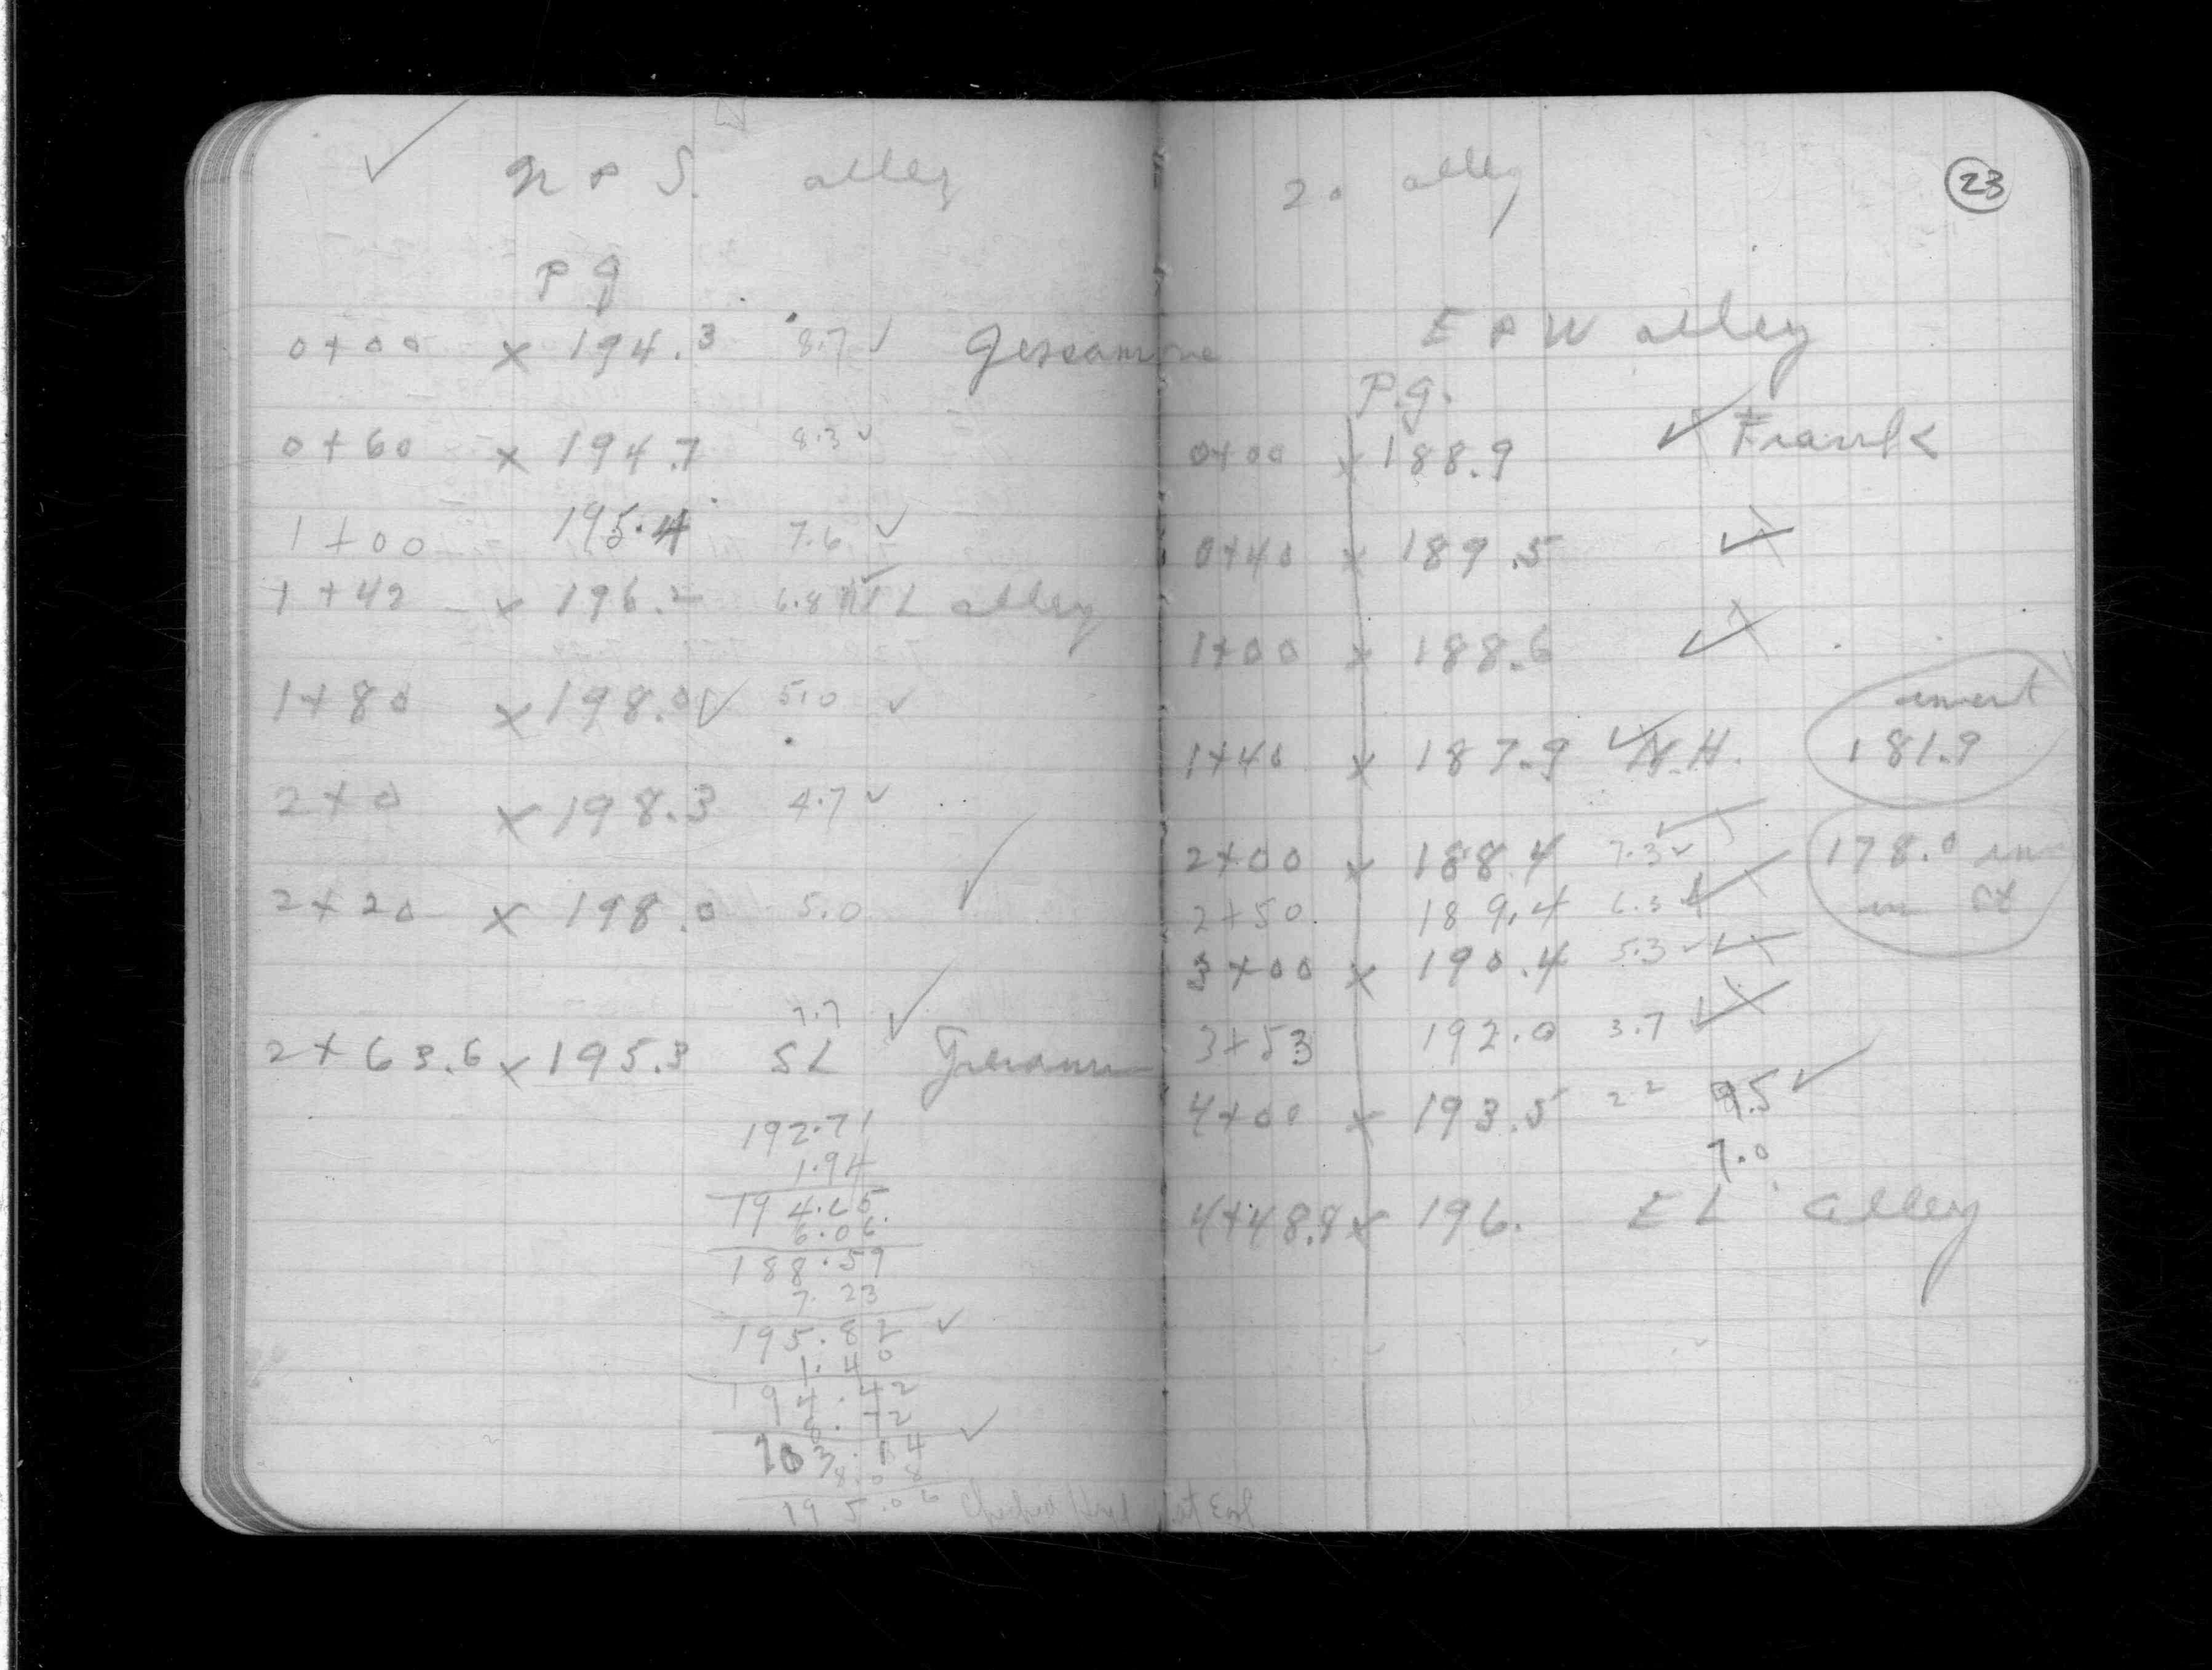 N & S. alley
P g
0+00 x 194.3 8.7 ✓ Jessamine
0+60 x 194.7 8.3 ✓
1+00 195.4 7.6 ✓
1+42 x 196.2 6.8 NL alley
1+80 x 198.0 ✓ 5.0 ✓
2+0 x 198.3 4.7 ✓
2+20 x 198.0 5.0 ✓
7.7 ✓
2+63.6 x 195.3 SL
192.71
1.94
194.65
6.06
188.59
7.23
195.82 ✓
1.40
194.42
8.72
203.14 ✓
8.08
195.06
20 alley
23
E & W alley
P.g.
0+00 x 188.9 ✓ Frank
0+40 x 189.5 ✓
1+00 x 188.6 ✓
invert
1+40 x 187.9 ✓ N.H. 181.9
2+00 x 188.4 7.3 ✓ 178.0 inv
2+50 189.4 6.3 ✓ in st
3+00 x 190.4 5.3 ✓
3+53 192.0 3.7 ✓
4+00 x 193.5 2.2 9.5 ✓
7.0
4+48.8 x 196. EL alley